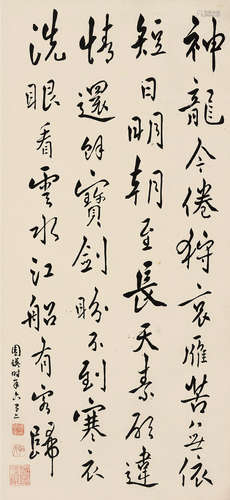 神龍今倦狩哀雁苦無依
短日明朝至長天素願違
情還餘寶劍盼不到寒衣
洗眼看雲水江船有客歸
圓瑛時年六十二